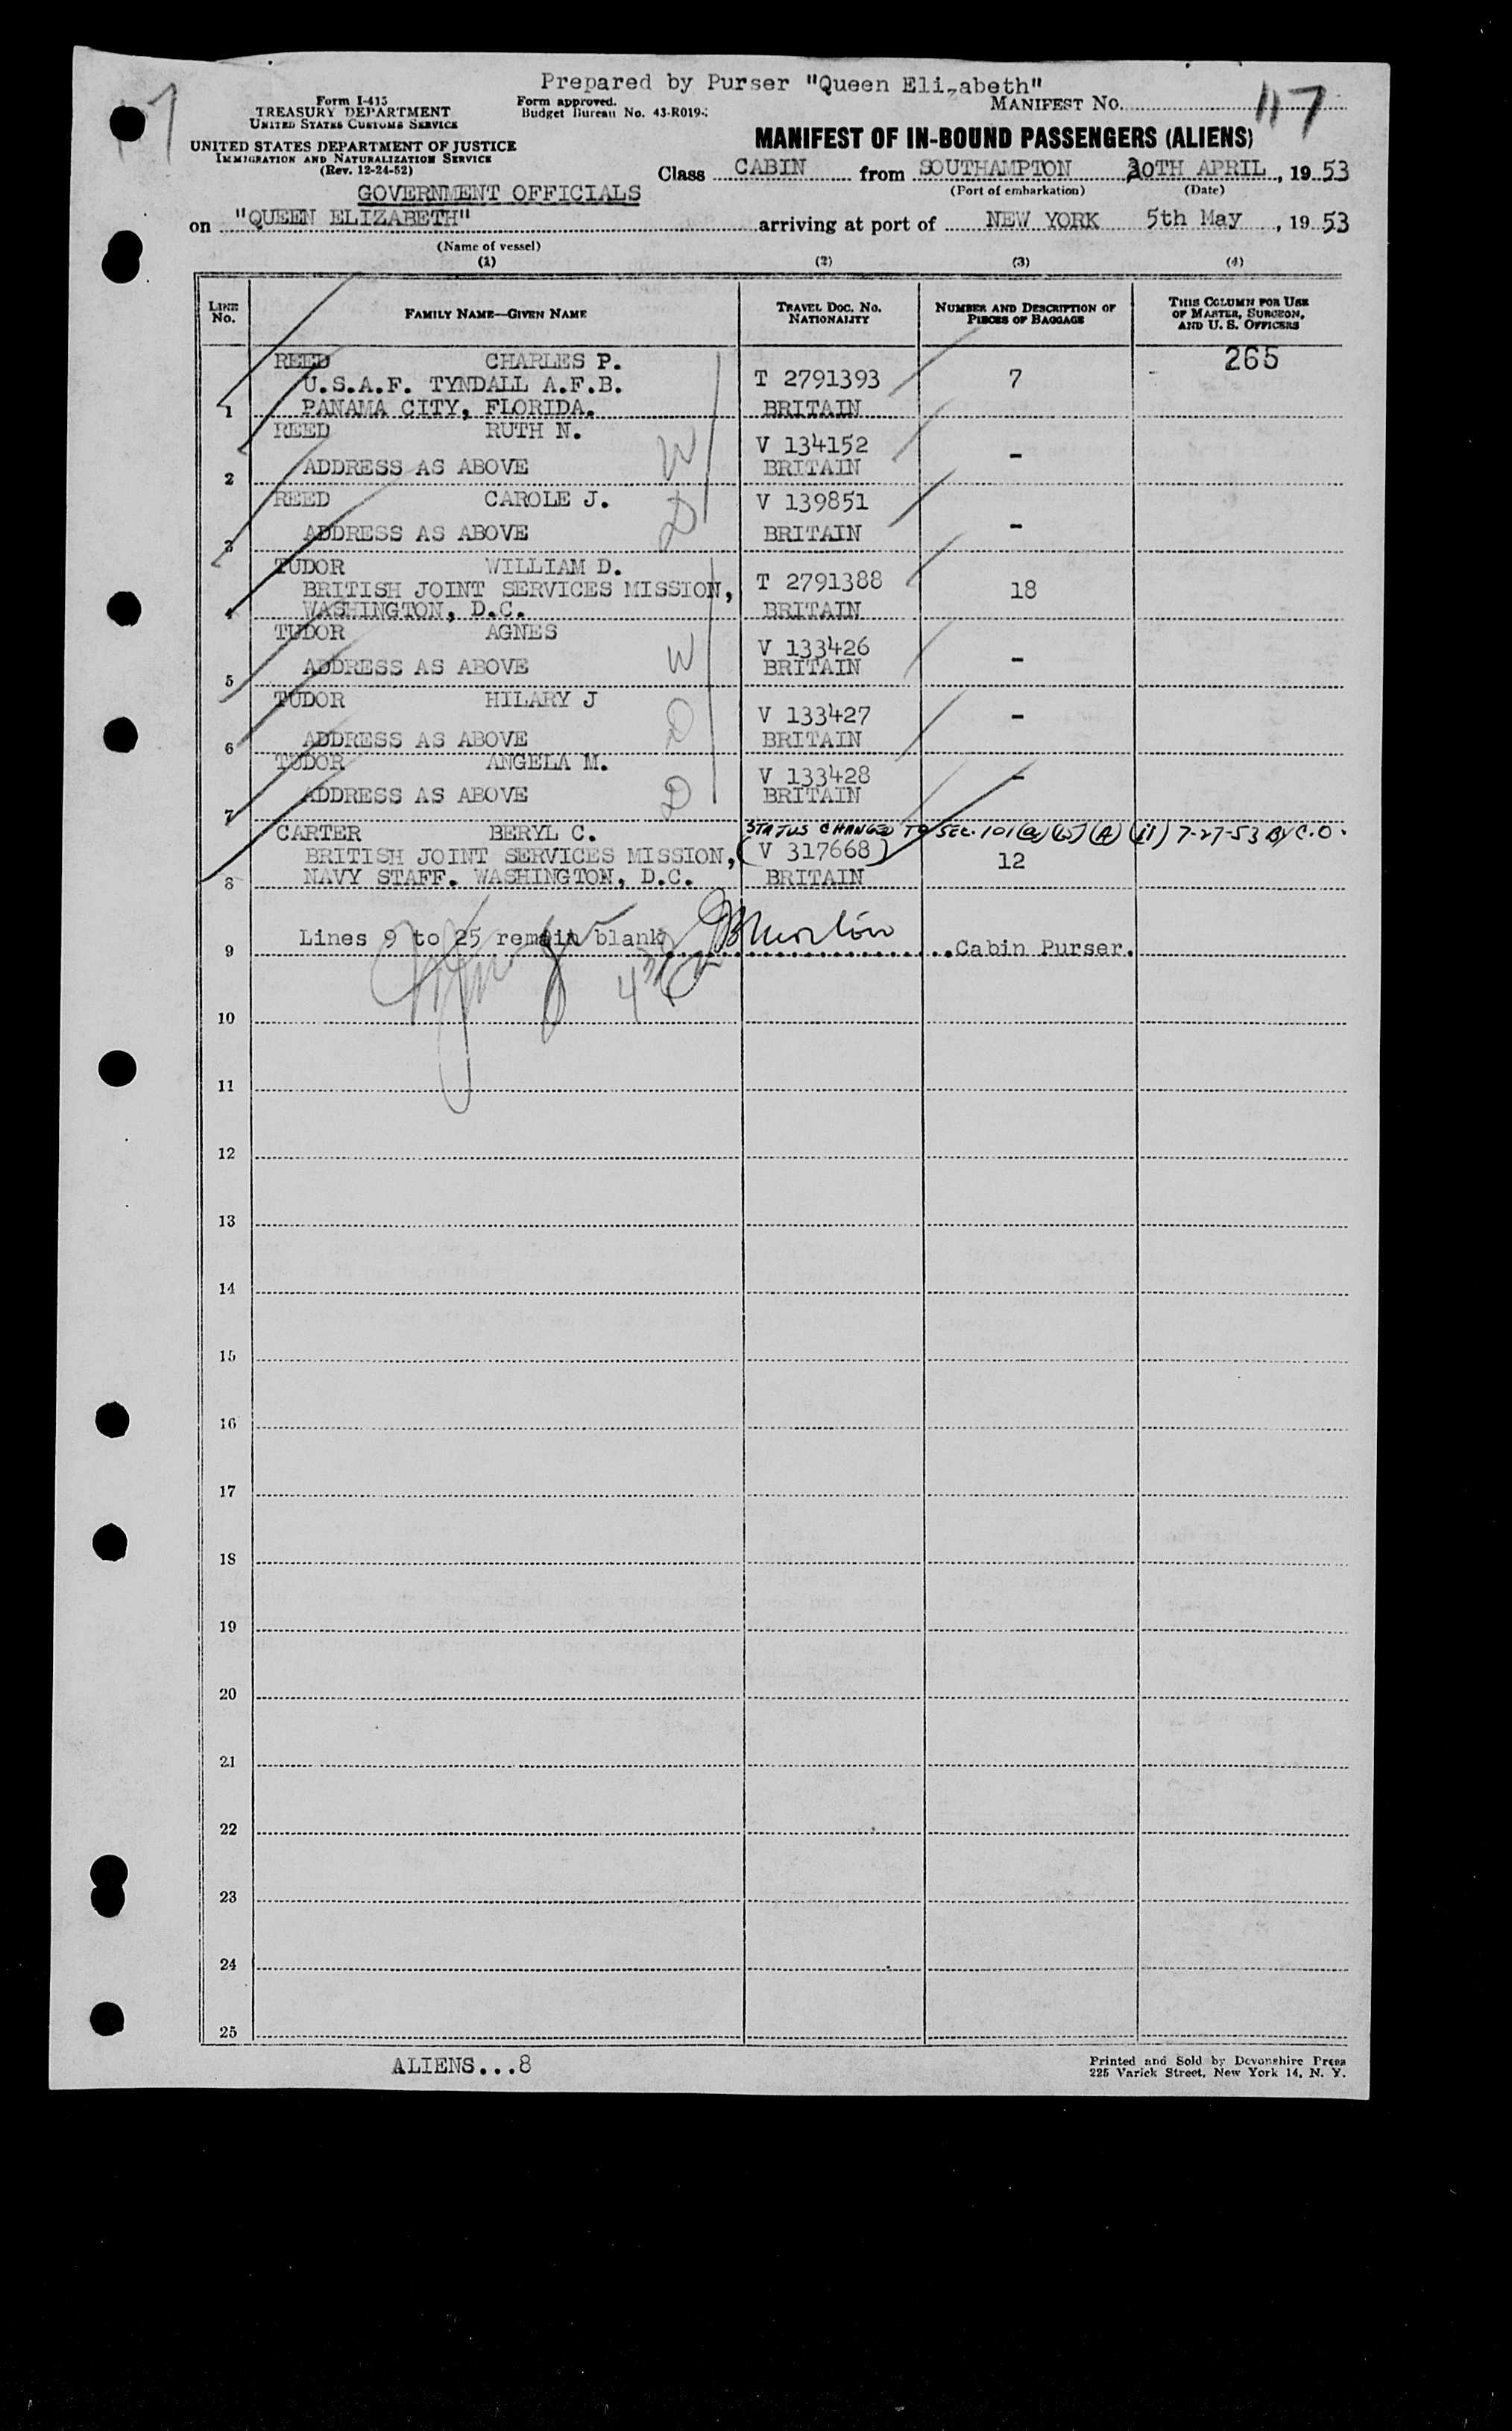 Prepared by Purser "Queen Elizabeth"
Form I-415
TREASURY DEPARTMENT
UNITED STATES CUSTOMS SERVICE
Form approved.
Budget Bureau No. 43-R019-
MANIFEST NO. 117
UNITED STATES DEPARTMENT OF JUSTICE
IMMIGRATION AND NATURALIZATION SERVICE
(Rev. 12-24-52)
MANIFEST OF IN-BOUND PASSENGERS (ALIENS)
Class CABIN from SOUTHAMPTON 30TH APRIL, 1953
(Port of embarkation) (Date)
GOVERNMENT OFFICIALS
on "QUEEN ELIZABETH" arriving at port of NEW YORK 5th May, 1953
(Name of vessel)
(1) (2) (3) (4)
LINE No. FAMILY NAME—GIVEN NAME TRAVEL DOC. NO. NATIONALITY NUMBER AND DESCRIPTION OF PIECES OF BAGGAGE THIS COLUMN FOR USE OF MASTER, SURGEON, AND U. S. OFFICERS
REED CHARLES P. 265
U.S.A.F. TYNDALL A.F.B. T 2791393 7
1 PANAMA CITY, FLORIDA. BRITAIN
REED RUTH N. V 134152 -
2 ADDRESS AS ABOVE W BRITAIN
REED CAROLE J. V 139851 -
3 ADDRESS AS ABOVE D BRITAIN
TUDOR WILLIAM D.
BRITISH JOINT SERVICES MISSION, T 2791388 18
4 WASHINGTON, D.C. BRITAIN
TUDOR AGNES V 133426 -
5 ADDRESS AS ABOVE W BRITAIN
TUDOR HILARY J V 133427 -
6 ADDRESS AS ABOVE D BRITAIN
TUDOR ANGELA M. V 133428 -
7 ADDRESS AS ABOVE D BRITAIN
CARTER BERYL C. STATUS CHANGED TO SEC. 101(a)(15)(A)(ii) 7-27-53 BY C.O.
BRITISH JOINT SERVICES MISSION, (V 317668) 12
8 NAVY STAFF. WASHINGTON, D.C. BRITAIN
9 Lines 9 to 25 remain blank Cabin Purser.
10
11
12
13
14
15
16
17
18
19
20
21
22
23
24
25
ALIENS...8
Printed and Sold by Devonshire Press
225 Varick Street, New York 14, N. Y.